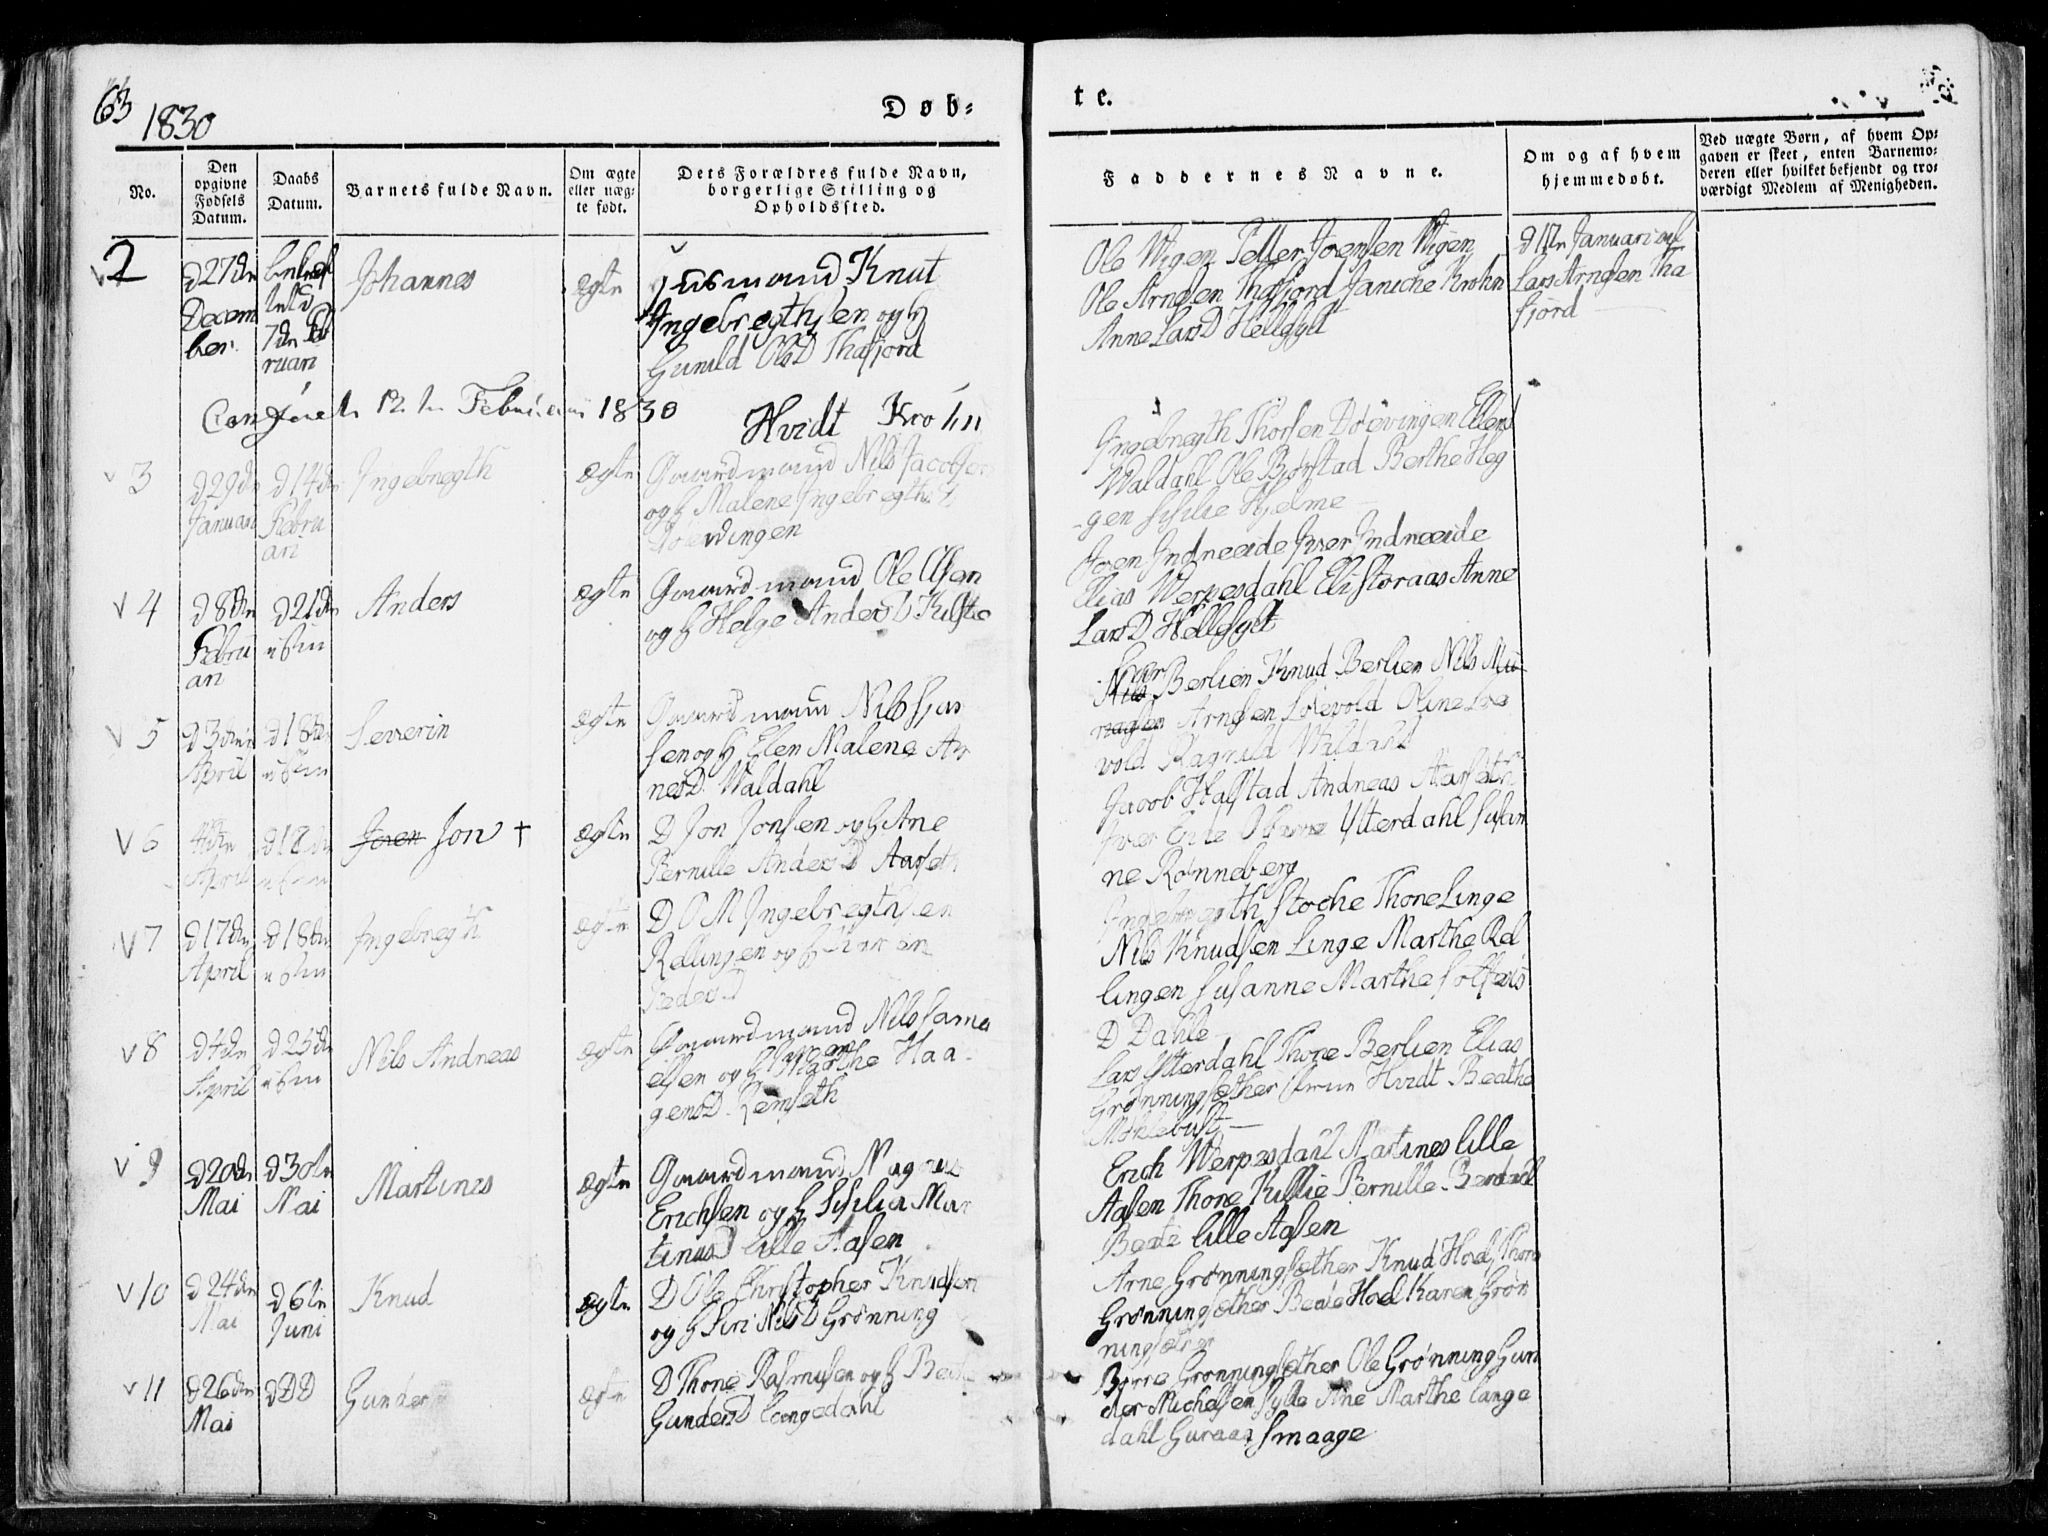 63
1830
Døb-
te.
No.
Den opgivne Fødsels Datum.
Daabs Datum.
Barnets fulde Navn.
Om ægte eller uægte født.
Dets Forældres fulde Navn, borgerlige Stilling og Opholdssted.
Faddernes Navne.
Om og af hvem hjemmedøbt.
Ved uægte Børn, af hvem Opgaven er skeet, enten Barnemoderen eller hvilket bekjendt og troværdigt Medlem af Menigheden.
2
d 27de
Decem
ber
7de Feb
ruari
Johannes
ægte
Huusmand Knut
Ingebregthsen og H
Gunild OlsD Thafjord
Ole Wigen Petter Joensen Wigen
Ole Arnesen Thafjord Janiche Krohn
Anne LarsD Hellesylt
Januari af
Lars Arnesen Tha
fjord
12te Februari 1830
Hvidt Krohn
3
d 29de
Januari
d 14de
Febru
ari
Ingebregth
ægte
Gaardmand Nils Jacobsen
og H Malene Ingebregths D
Døevingen
Ingebregth Thorsen Døevingen Ellend
Waldahl Ole Bjørstad Berthe Heg
gen Hjelme
4
d 8de
Febru
ari
d 21de
Anders
ægte
Gaardmand Ole Olsen
og H Helge AndersD Kilstie
Joren Indreeide Iver Indreeide
Elias Werpesdahl Eli Storaas Anne
LarsD Hellesylt
5
d 3die
April
d 18de
Severin
ægte
Gaardmand Nils
sen og H Elen Malene Ar
nesD. Waldahl
Berlien Knud Berlien Nils
Arnesen Løevold Oline Løe
vold Ragnild Waldahl
6
4de
April
d 18de
Joren Jon †
ægte
D Jon Jonsen og H Ane
Pernille AndersD Aarseth
Jacob Halstad Andreas Aarseth
Iver Eide Ytterdahl Susan
ne Rønneberg
7
d 17de
April
d 18de
Ingebregth
ægte
D O M Ingebregthsen
Rellingen og H Karen
PedersD
Ingebregth Stoche Thore Linge
Nils Knudsen Linge Marthe Rel
lingen Susanne Marthe
D Dahle
8
d 4de
April
d 25de
Nils Andreas
ægte
Gaardmand Nils Samu
elsen og H Marthe Haa-
gensD. Remseth
Lars Ytterdahl Thore Berlien Elias
Grønningsæther Hvidt Beathe
Møklebust
9
d 20de
Mai
d 30te
Mai
Martines
ægte
Gaardmand Magnus
Erichsen og H Sisilia Mar
tinusD lille Aasen
Erich Werpesdahl Martines lille
Aasen Thore Killie Pernille
Beate lille Aasen
10
d 24de
Mai
d 6te
Juni
Knud
ægte
D Ole Christopher Knudsen
og H Siri NilsD Grønning
Arne Grønningsæther Knud Hoel Thore
Grønningsæther Beate Hoel Karen Grøn
ningsæter
11
d 26de
Mai
d D D
Gunder
ægte
D Thore Rasmusen og H Beate
GundersD Langedahl
Børre Grønningsæther Ole Grønning Gun
der Michelsen Sylte Ane Marthe Lange
dahl Guraaa Smaage